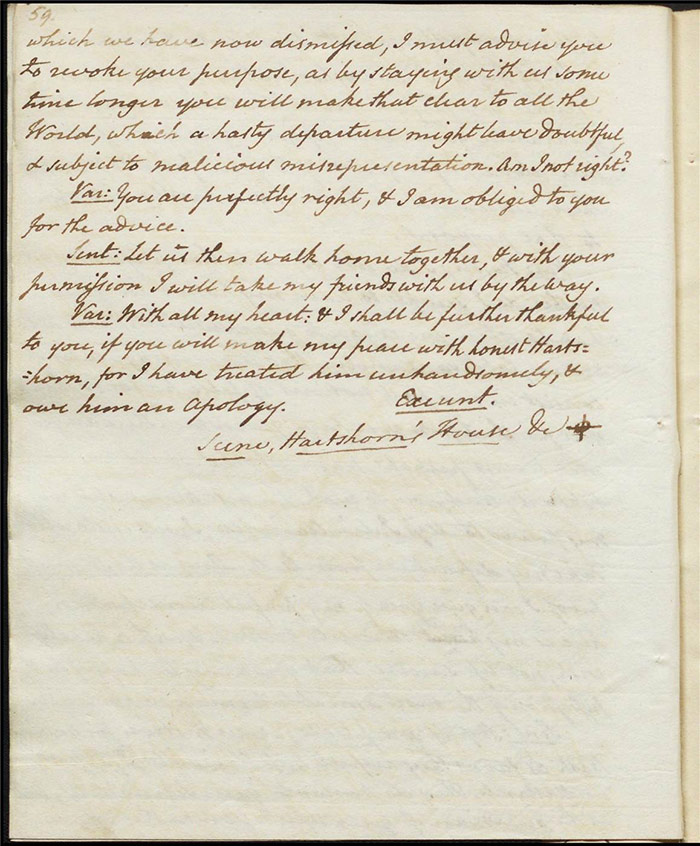 59.
which we have now dismissed, I must advise you
to revoke your purpose, as by staying with us some
time longer you will make that clear to all the
World, which a hasty departure might leave doubtful,
& subject to malicious misrepresentation. Am I not right?
Var: You are perfectly right, & I am obliged to you
for the advice.
Sent: Let us then walk home together, & with your
permission I will take my friends with us by the way.
Var: With all my heart: & I shall be further thankful
to you, if you will make my peace with honest Harts=
=horn, for I have treated him unhandsomely, &
owe him an Apology. Exeunt.
Scene, Hartshorn's House &c